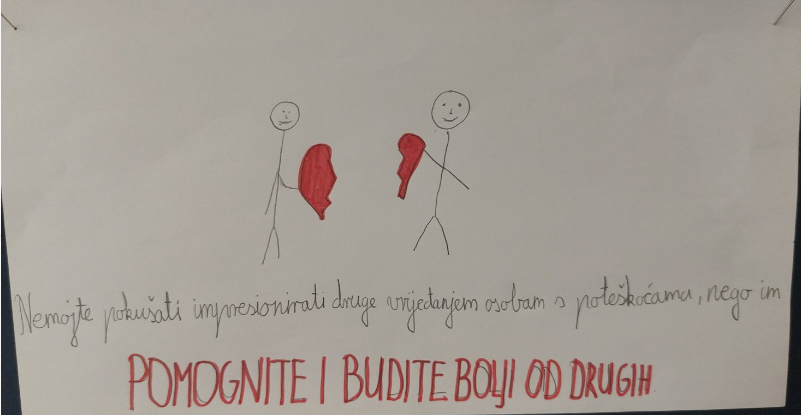 Nemojte pokušati impresionirati druge vrijeđanjem osobam s poteškoćama, nego im
POMOGNITE I BUDITE BOLJI OD DRUGIH